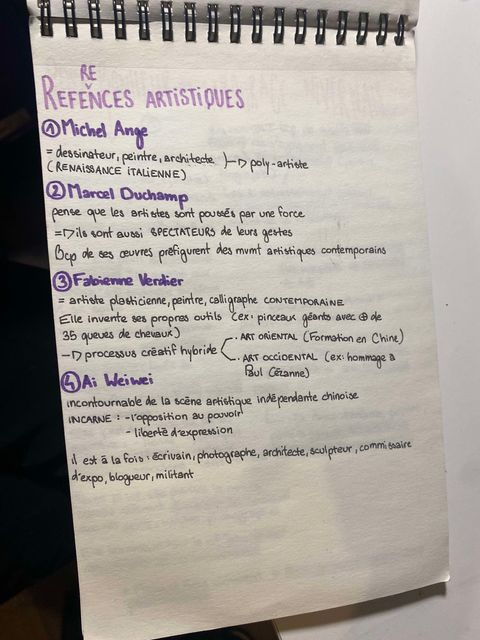 RE
REFENCES ARTISTIQUES
① Michel Ange
= dessinateur, peintre, architecte
(RENAISSANCE ITALIENNE)
poly-artiste
② Marcel Duchamp
pense que les artistes sont poussés par une force
=> ils sont aussi SPECTATEURS de leurs gestes
Bcp de ses œuvres préfigurent des mvmt artistiques contemporains
③ Fabienne Verdier
= artiste plasticienne, peintre, calligraphe CONTEMPORAINE
Elle invente ses propres outils (ex: pinceaux géants avec ⊕ de
35 queues de chevaux)
-> processus créatif hybride
. ART ORIENTAL (Formation en Chine)
. ART OCCIDENTAL (ex: hommage à
Paul Cézanne)
④ Ai Weiwei
incontournable de la scène artistique indépendante chinoise
INCARNE : - l'opposition au pouvoir
- liberté d'expression
il est à la fois : écrivain, photographe, architecte, sculpteur, commissaire
d'expo, blogueur, militant